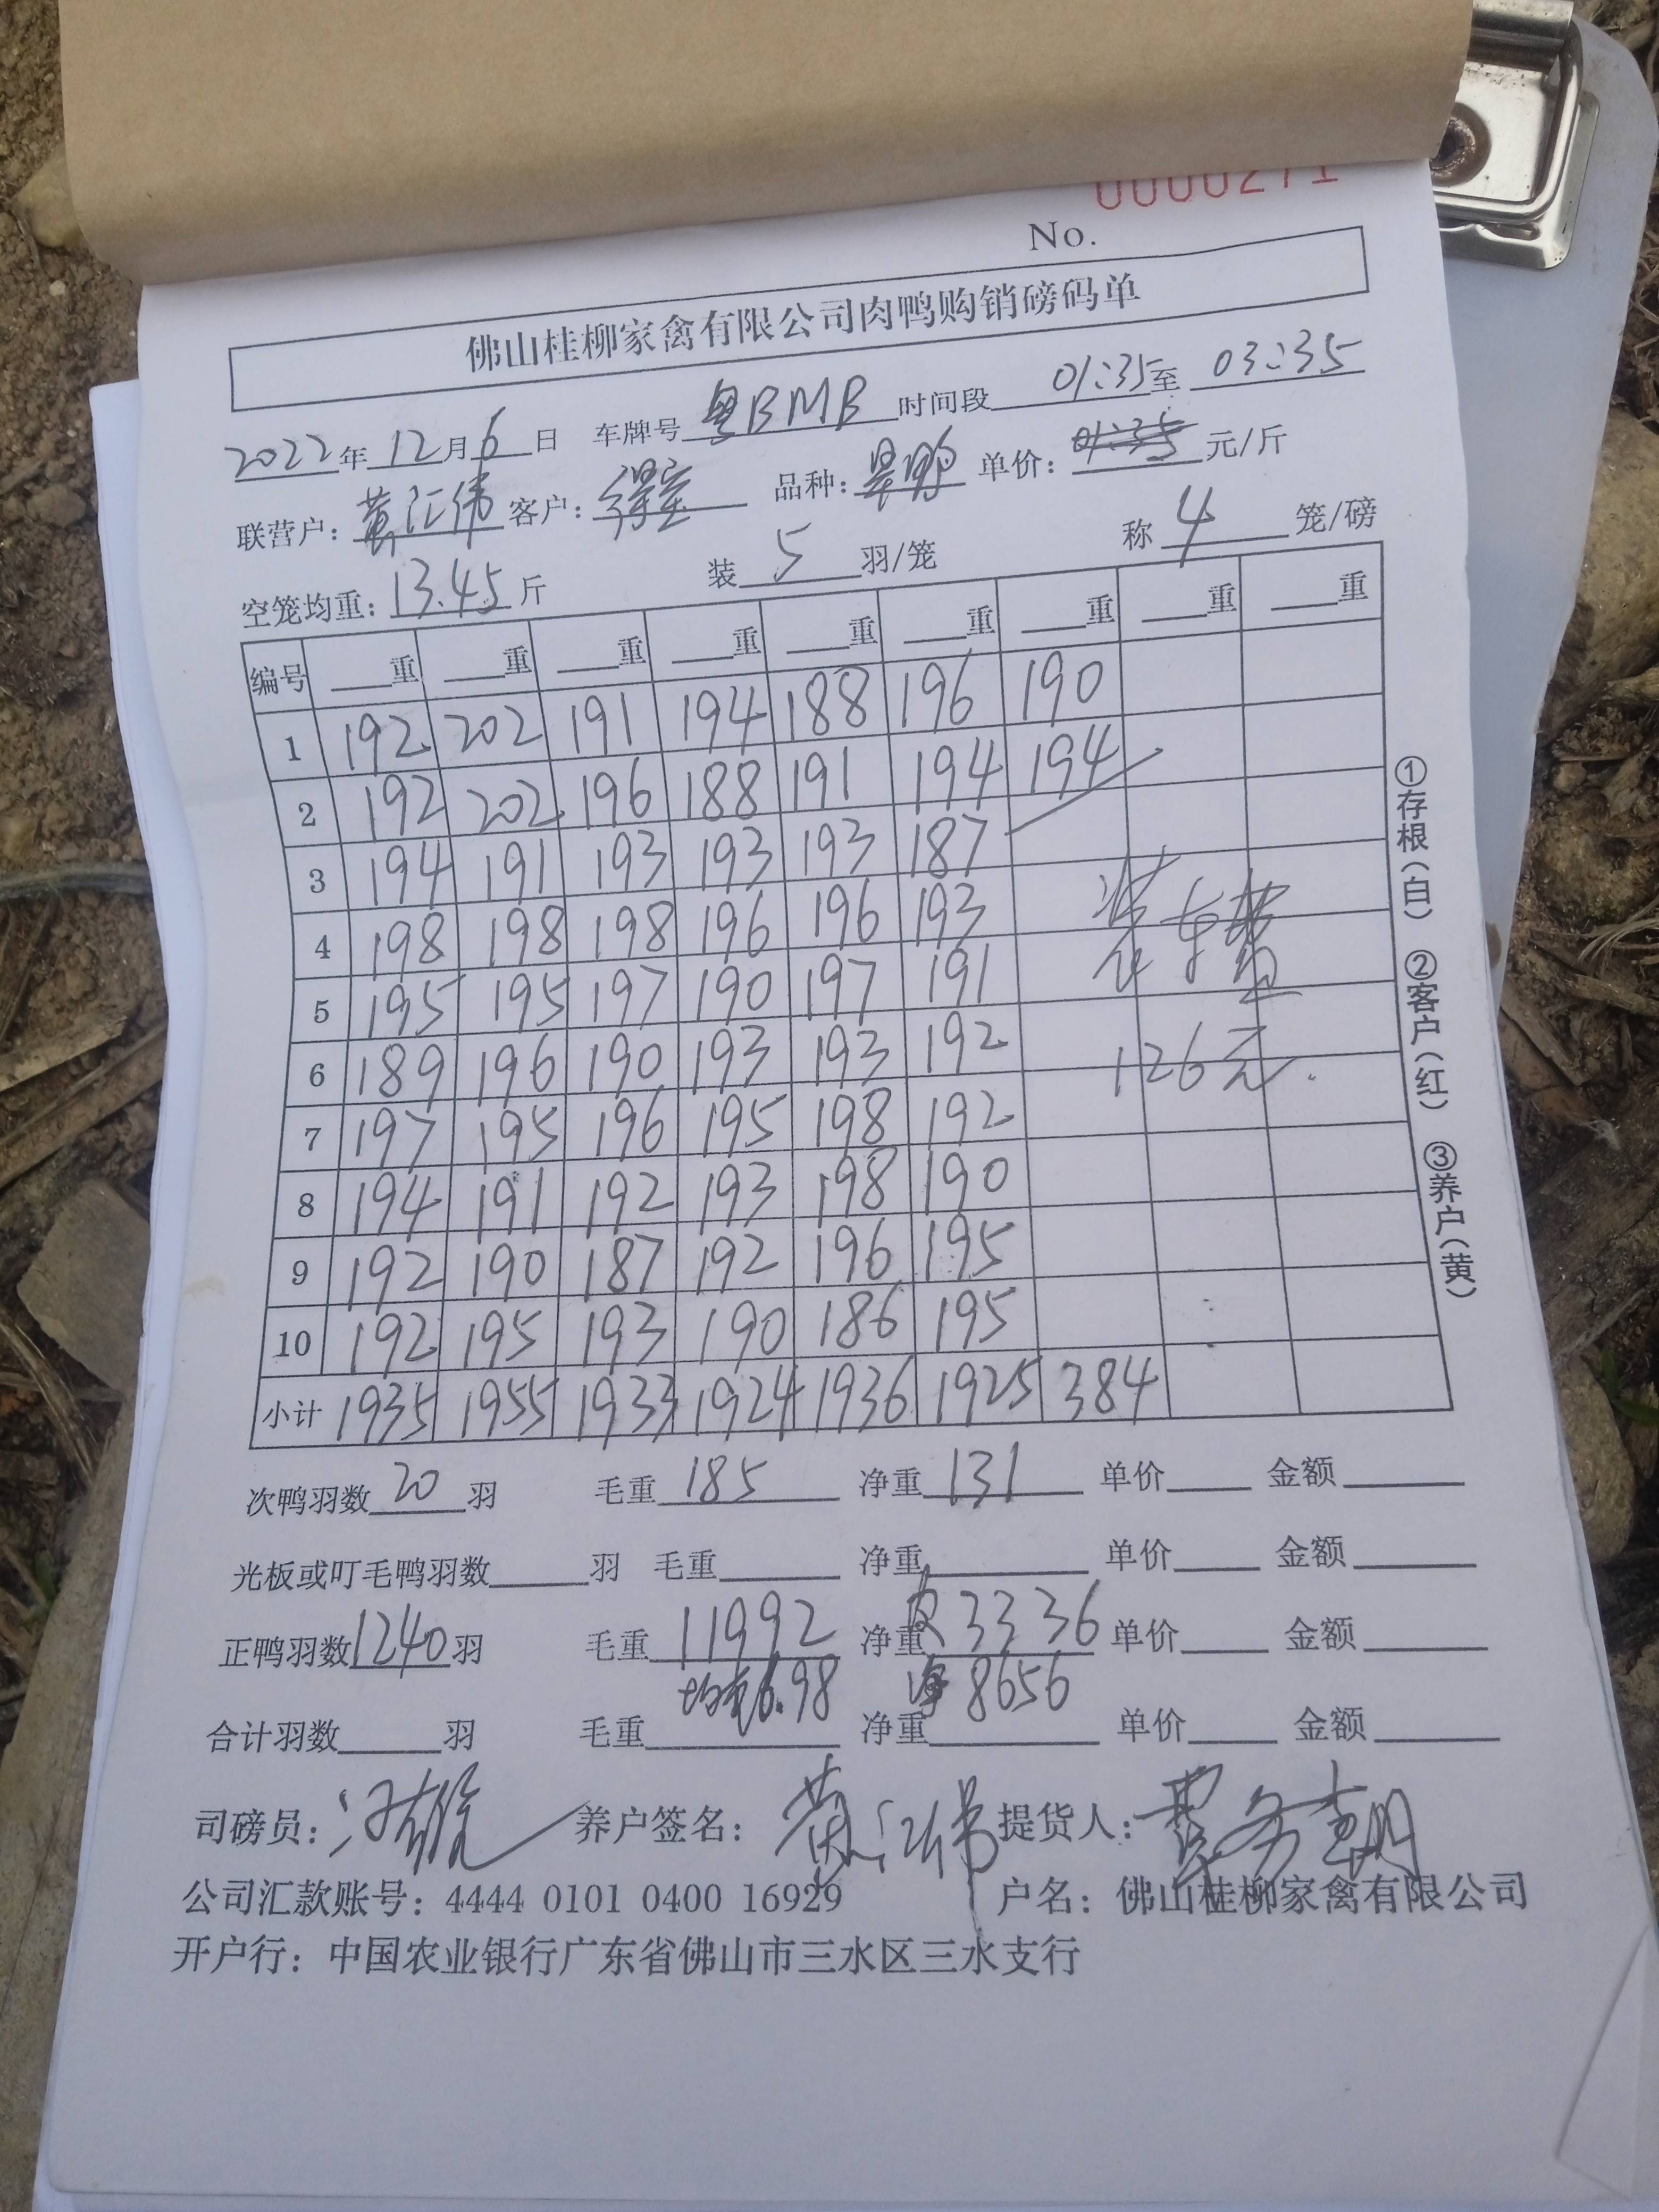 0000271
No.
佛山桂柳家禽有限公司肉鸭购销磅码单
2022年12月6日 车牌号粤BMB 时间段01:35至03:35
联营户:黄江伟 客户: 品种: 单价:01:35元/斤
空笼均重:13.45斤 装5羽/笼 称4笼/磅
编号 重 重 重 重 重 重 重 重 重
1 192 202 191 194 188 196 190
2 192 202 196 188 191 194 194
3 194 191 193 193 193 187
4 198 198 198 196 196 193
5 195 195 197 190 197 191
6 189 196 190 193 193 192
7 197 195 196 195 198 192
8 194 191 192 193 198 190
9 192 190 187 192 196 195
10 192 195 193 190 186 195
小计 1935 1955 1933 1924 1936 1925 384
装车费
126元.
①存根(白) ②客户(红) ③养户(黄)
次鸭羽数20羽 毛重185 净重131 单价 金额
光板或叮毛鸭羽数 羽 毛重 净重 单价 金额
正鸭羽数1240羽 毛重11992 净重皮3336 单价 金额
均重6.98 净8656
合计羽数 羽 毛重 净重 单价 金额
司磅员: 养户签名:黄江伟 提货人:
公司汇款账号:4444 0101 0400 16929 户名:佛山桂柳家禽有限公司
开户行:中国农业银行广东省佛山市三水区三水支行